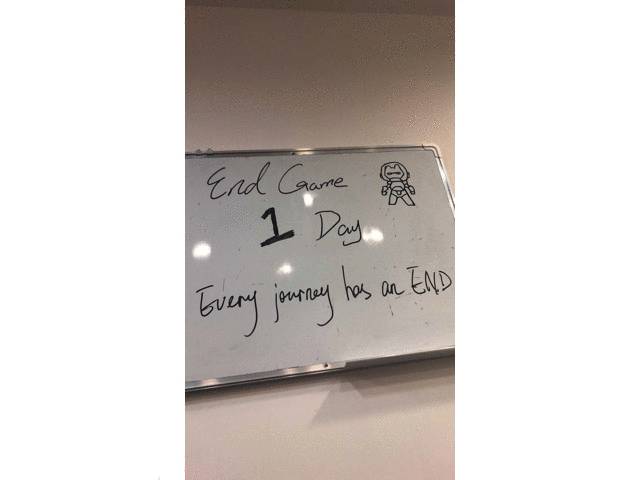 End Game
1 Day
Every journey has an END